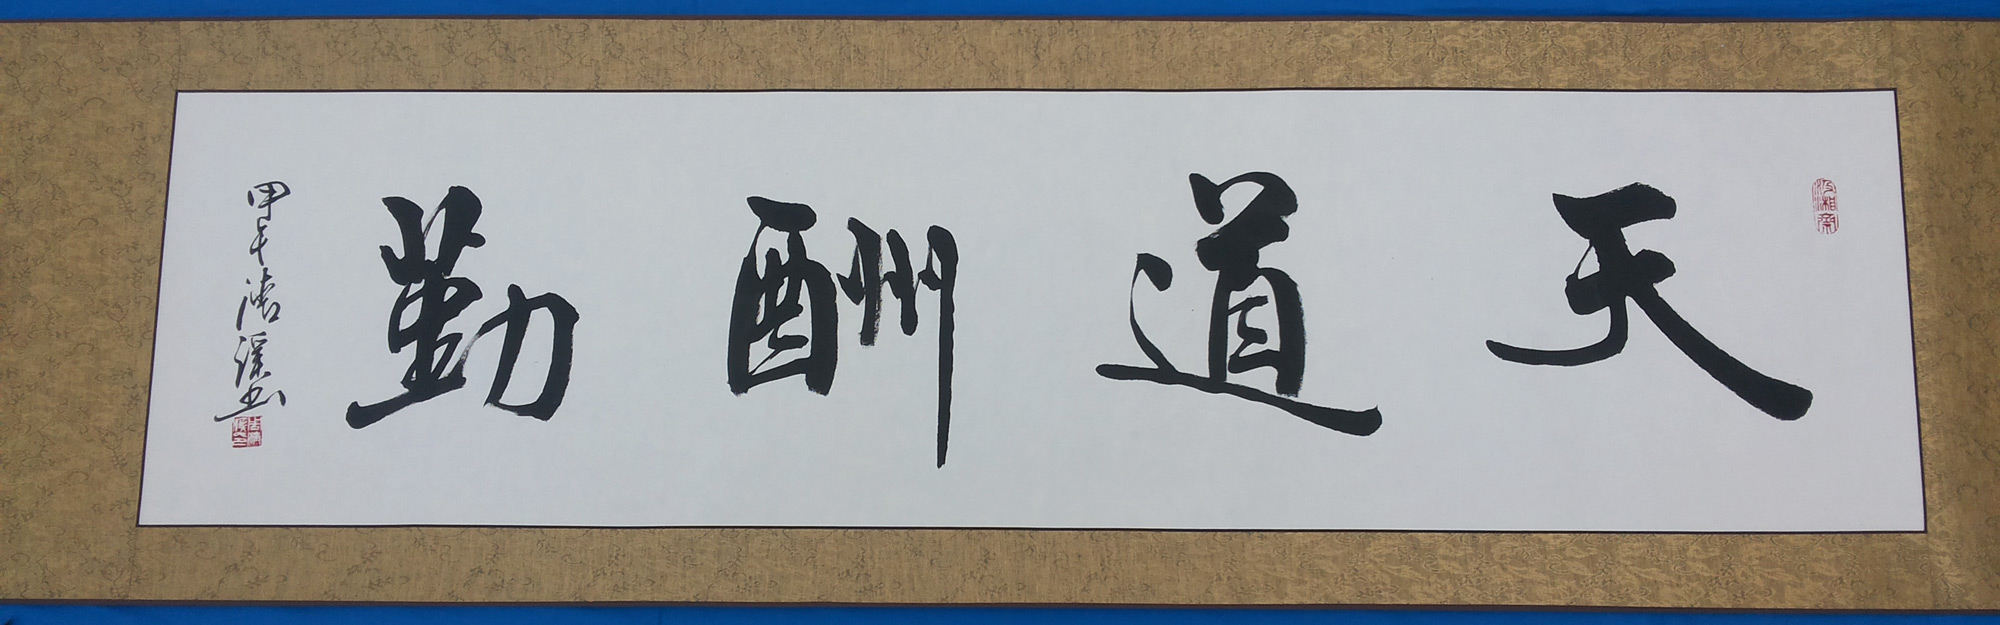 天道酬勤
甲午清溪书